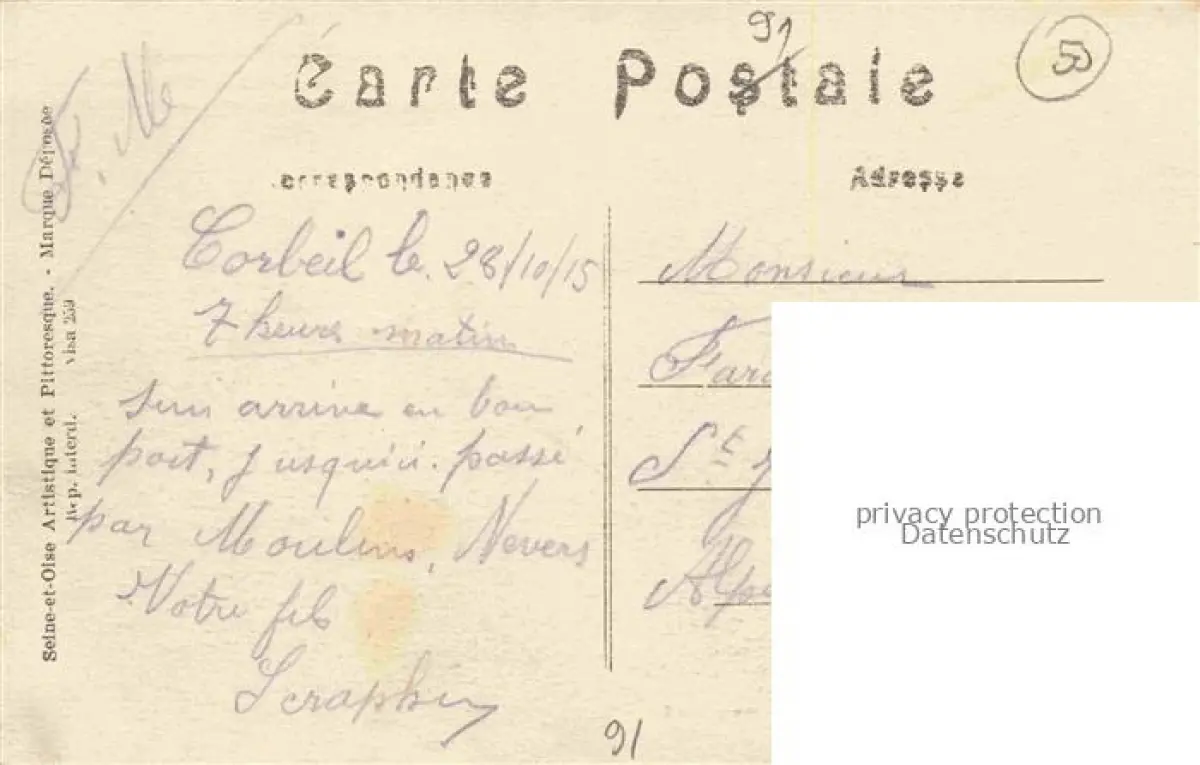 91
50
Carte Postale
Correspondance
Adresse
Seine-et-Oise Artistique et Pittoresque. - Marque Déposée
Rep. interd. visa 259
F. M.
Corbeil le. 28/10/15
7 heures matin
Suis arrivé en bon
port, jusqu'ici. passé
par Moulins, Nevers
Votre fils
Séraphin
Monsieur
St
privacy protection
Datenschutz
91